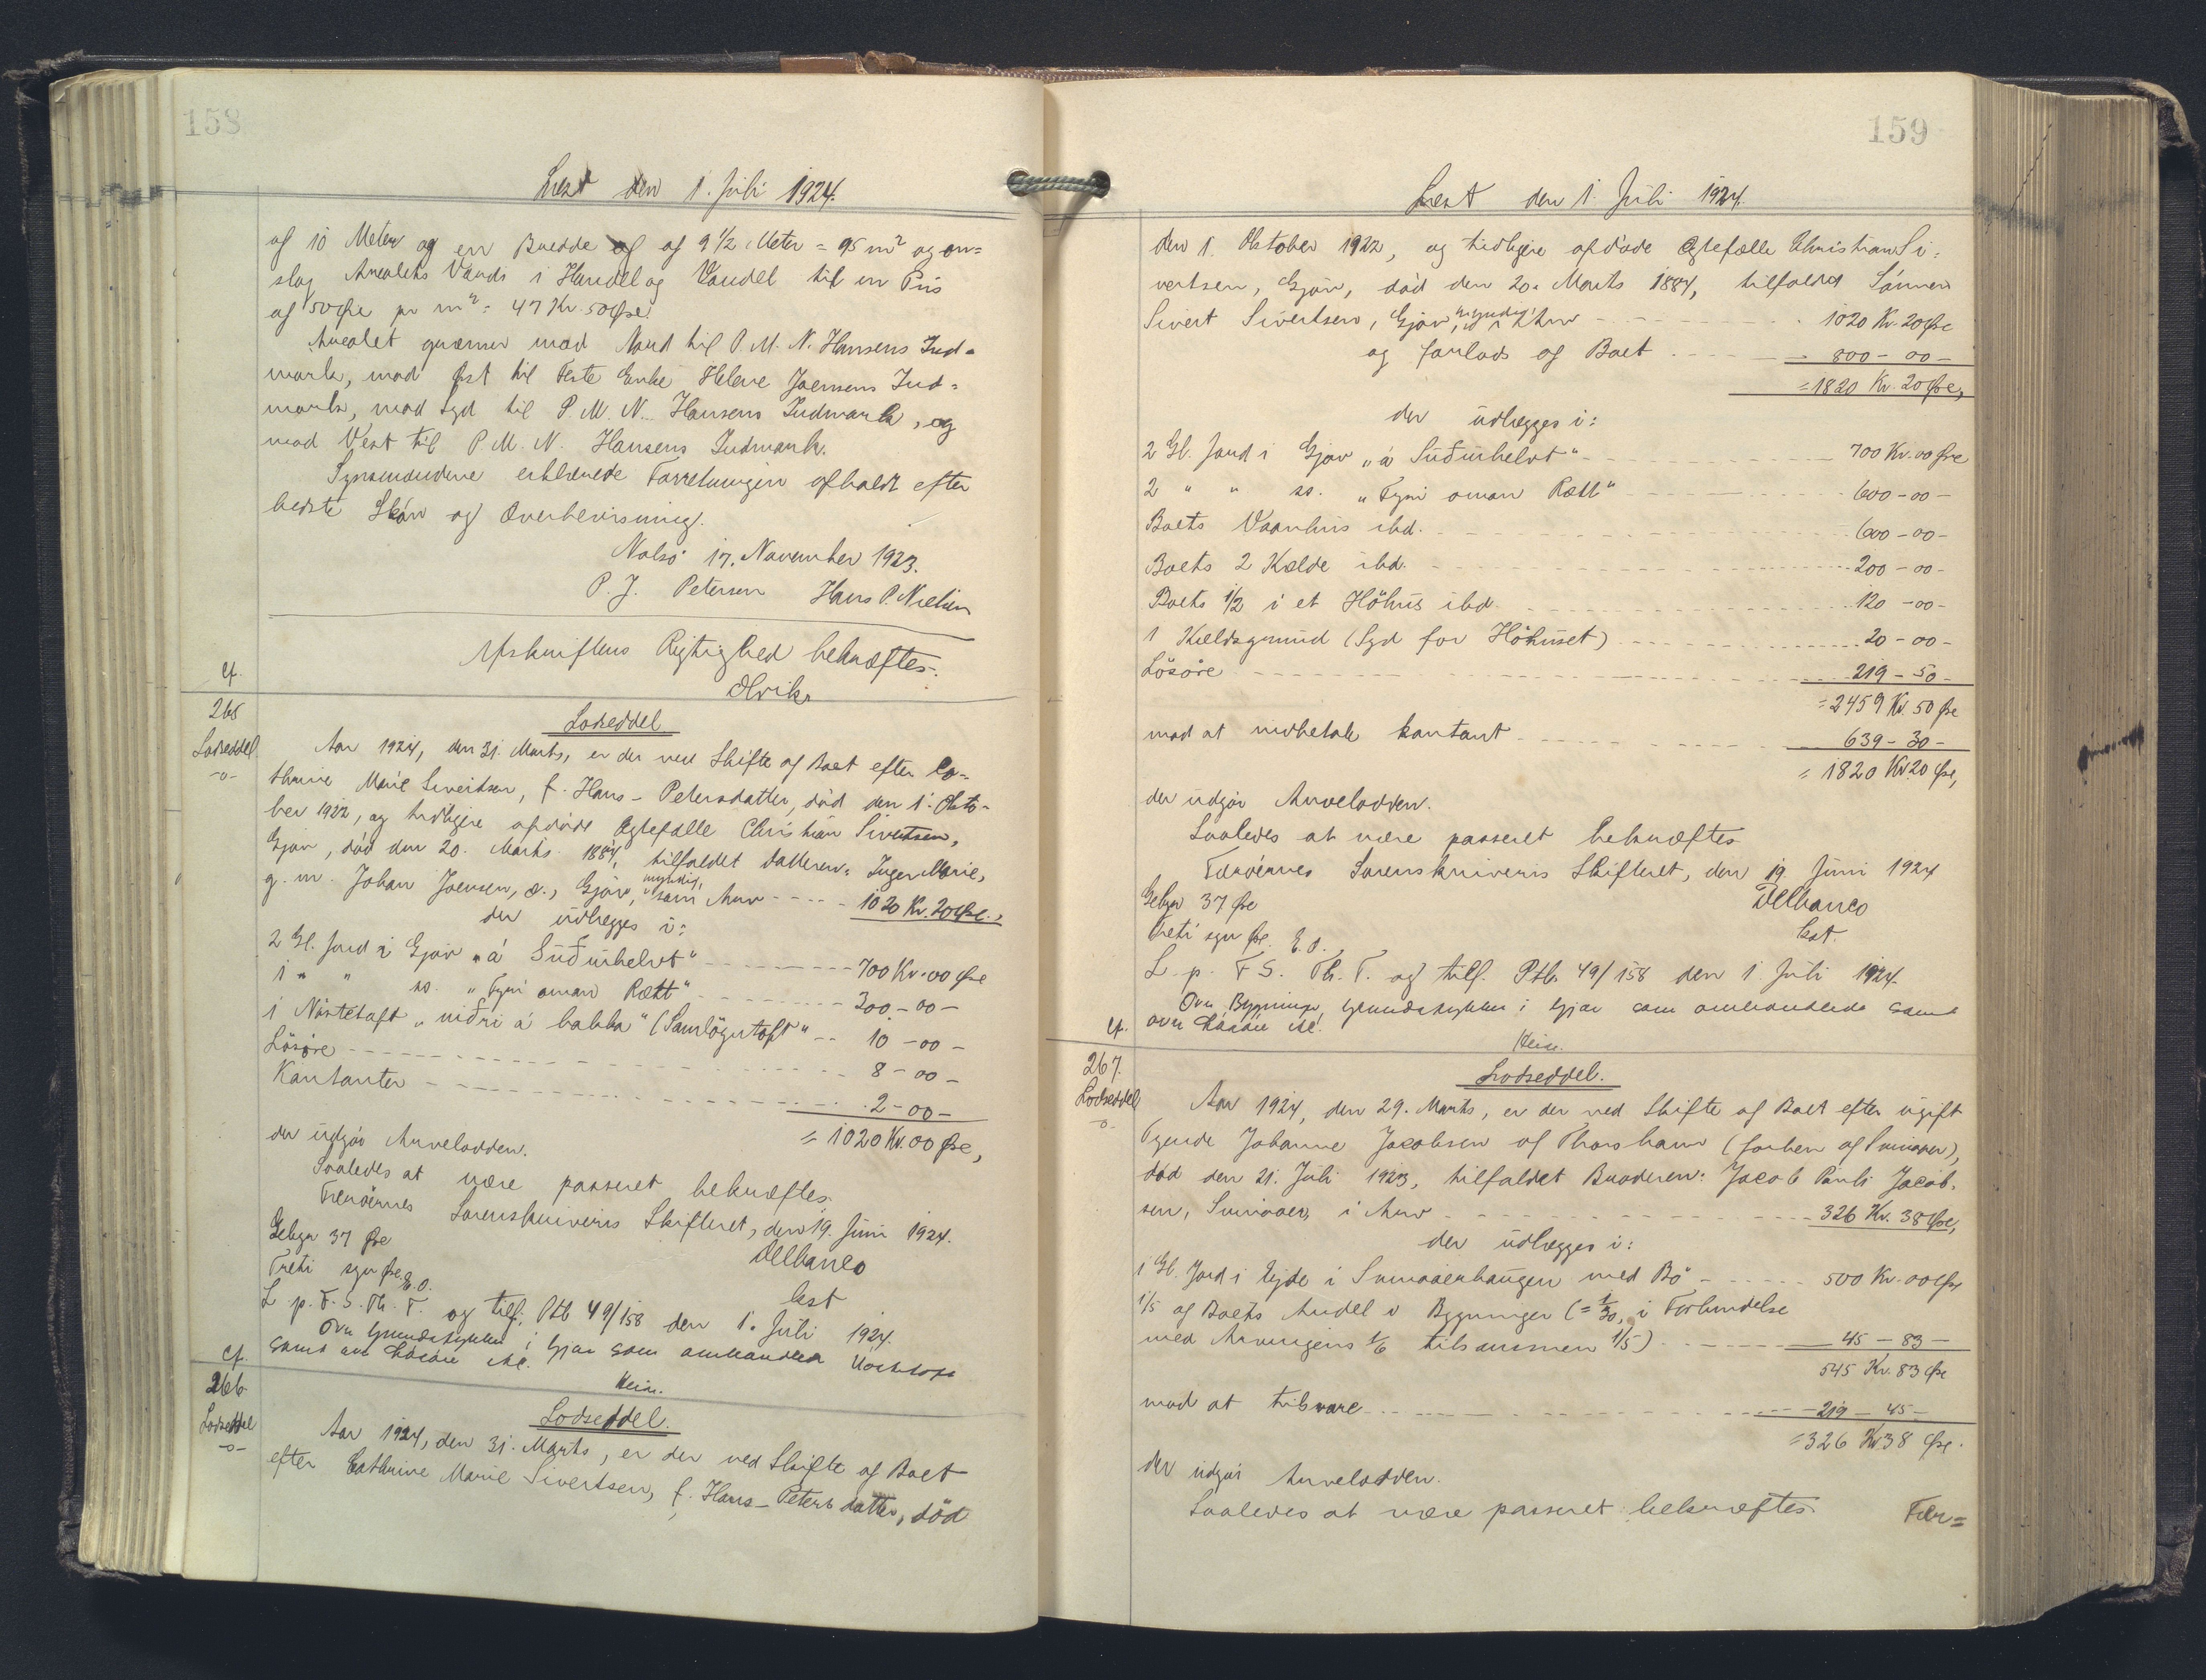 158
Læst den 1. Juli 1924.
af 10 Meter og en Bredde af 9 1/2 Meter = 95 m² og an=
slog Arealets Værdi i Handel og Vandel til en Pris
af 50 Øre pr m² = 47 Kr. 50 Øre.
Arealet grænser mod Nord til P. M. N. Hansens Ind=
mark, mod Øst til Feste Enke Helene Joensens Ind=
mark, mod Syd til P. M. N. Hansens Indmark, og
mod Vest til P. M. N. Hansens Indmark.
Synsmændene erklærede Forretningen afholdt efter
bedste Skön og Overbevisning.
Nolsö 17. November 1923.
P. J. Petersen Hans P. Nielsen
Afskriftens Rigtighed bekræftes.
cf.
265
Lodseddel
-o-
Lodseddel.
Aar 1924, den 31. Marts, er der ved Skifte af Boet efter Ca=
thrine Marie Sivertsen, f. Hans-Petersdatter, död den 1. Okto=
ber 1922, og tidligere afdöde Ægtefælle Christian Sivertsen,
Gjov, död den 20. Marts 1884, tilfaldet Datteren: Inger Marie,
g. m. Johan Joensen, æ., Gjov, myndig, som Arv - - - - 1020 Kr. 20 Øre.,
der udlægges i:
2 Gl. Jord i Gjov „á Suðurhelvt" - - - - 700 Kr. 00 Øre
1 " " ss. „Fyri oman Rætt" - - - - 300 - 00 -
1 Nöstetoft „niðri á bakka" (Samlögutoft" - - 10 - 00 -
Lösöre - - - - 8 - 00 -
Kontanter - - - - 2 - 00 -
= 1020 Kr. 00 Øre,
der udgör Arvelodden.
Saaledes at være passeret bekræftes.
Færöernes Sorenskriveris Skifteret, den 19. Juni 1924.
Gebyr 37 Øre
Delbanco
Treti syv Øre. E.O.
kst
L. p. F. S. Th. F. og tilf. Ptb 49/158 den 1. Juli 1924.
Ovn Grundstykker i Gjov som omhandlet
samt ovn Lösöre
cf.
266
Lodseddel
-o-
Lodseddel.
Aar 1924, den 31. Marts, er der ved Skifte af Boet
efter Cathrine Marie Sivertsen, f. Hans-Petersdatter, död
159
Læst den 1. Juli 1924.
den 1. Oktober 1922, og tidligere afdöde Ægtefælle Christian Si=
vertsen, Gjov, död den 20. Marts 1884, tilfaldet Sönnen
Sivert Sivertsen, Gjov, myndig, i Arv - - - - 1020 Kr. 20 Øre
og forlods af Boet - - - - 800 - 00 -
= 1820 Kr. 20 Øre,
der udlægges i:
2 Gl. Jord i Gjov „á Suðurhelvt" - - - - 700 Kr. 00 Øre
2 " " ss. „Fyri oman Rætt" - - - - 600 - 00 -
Boets Vaanhus ibd. - - - - 600 - 00 -
Boets 2 Kælde ibd. - - - - 200 - 00 -
Boets 1/2 i et Höhus ibd. - - - - 120 - 00 -
1 Kældsgrund (Syd for Höhuset) - - - - 20 - 00 -
Lösöre - - - - 219 - 50 -
= 2459 Kr. 50 Øre
mod at indbetale kontant - - - - 639 - 30 -
= 1820 Kr 20 Øre,
der udgör Arvelodden.
Saaledes at være passeret bekræftes
Færöernes Sorenskriveris Skifteret, den 19 Juni 1924
Gebyr 37 Øre
Delbanco
Treti syv Øre. E.O.
kst.
L. p. F. S. Th. F. og tilf. Ptb. 49/158 den 1. Juli 1924.
Ovn Bygninger, Grundstykker i Gjov som omhandlede samt
ovn Lösöre
cf.
267.
Lodseddel
-o-
Lodseddel.
Aar 1924, den 29. Marts, er der ved Skifte af Boet efter ugift
Tyende Johanne Jacobsen af Thorshavn (forhen af Sumbö),
död den 21. Juli 1923, tilfaldet Broderen: Jacob Pauli Jacob-
sen, i Arv - - - - 326 Kr. 38 Øre,
der udlægges i:
1 Gl. Jord i Ejde i med Bö - - - - 500 Kr. 00 Øre
1/5 af Boets Andel i Bygninger (= 1/30, i Forbindelse
med Arvingens 1/6 tilsammen 1/5) - - - - 45 - 83 -
545 Kr. 83 Øre
mod at tilsvare - - - - 219 - 45 -
= 326 Kr 38 Øre.
der udgör Arvelodden.
Saaledes at være passeret bekræftes. Fær=